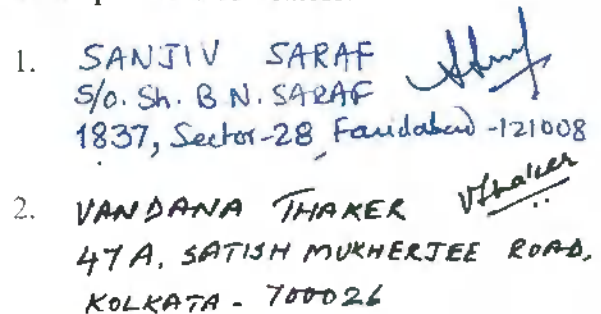 1. SANJIV SARAF
S/o. Sh. B N. SARAF
1837, Sector-28, Faridabad -121008
2. VANDANA THAKER VThaker
47A, SATISH MUKHERJEE ROAD,
KOLKATA - 700026